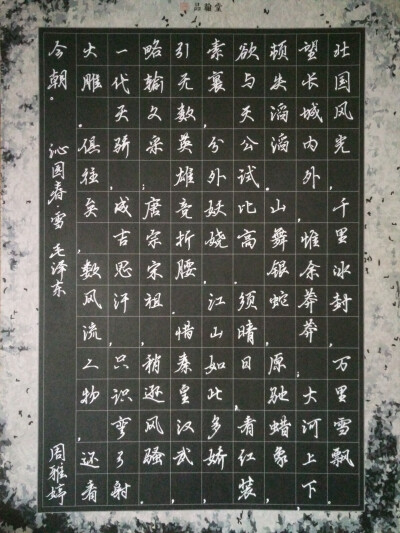 品翰堂
北国风光，千里冰封，万里雪飘。
望长城内外，惟余莽莽；大河上下，
顿失滔滔。山舞银蛇，原驰蜡象，
欲与天公试比高。须晴日，看红装
素裹，分外妖娆。江山如此多娇，
引无数英雄竞折腰。惜秦皇汉武，
略输文采；唐宗宋祖，稍逊风骚。
一代天骄，成吉思汗，只识弯弓射
大雕。俱往矣，数风流人物，还看
今朝。 沁园春·雪 毛泽东 周雅婷